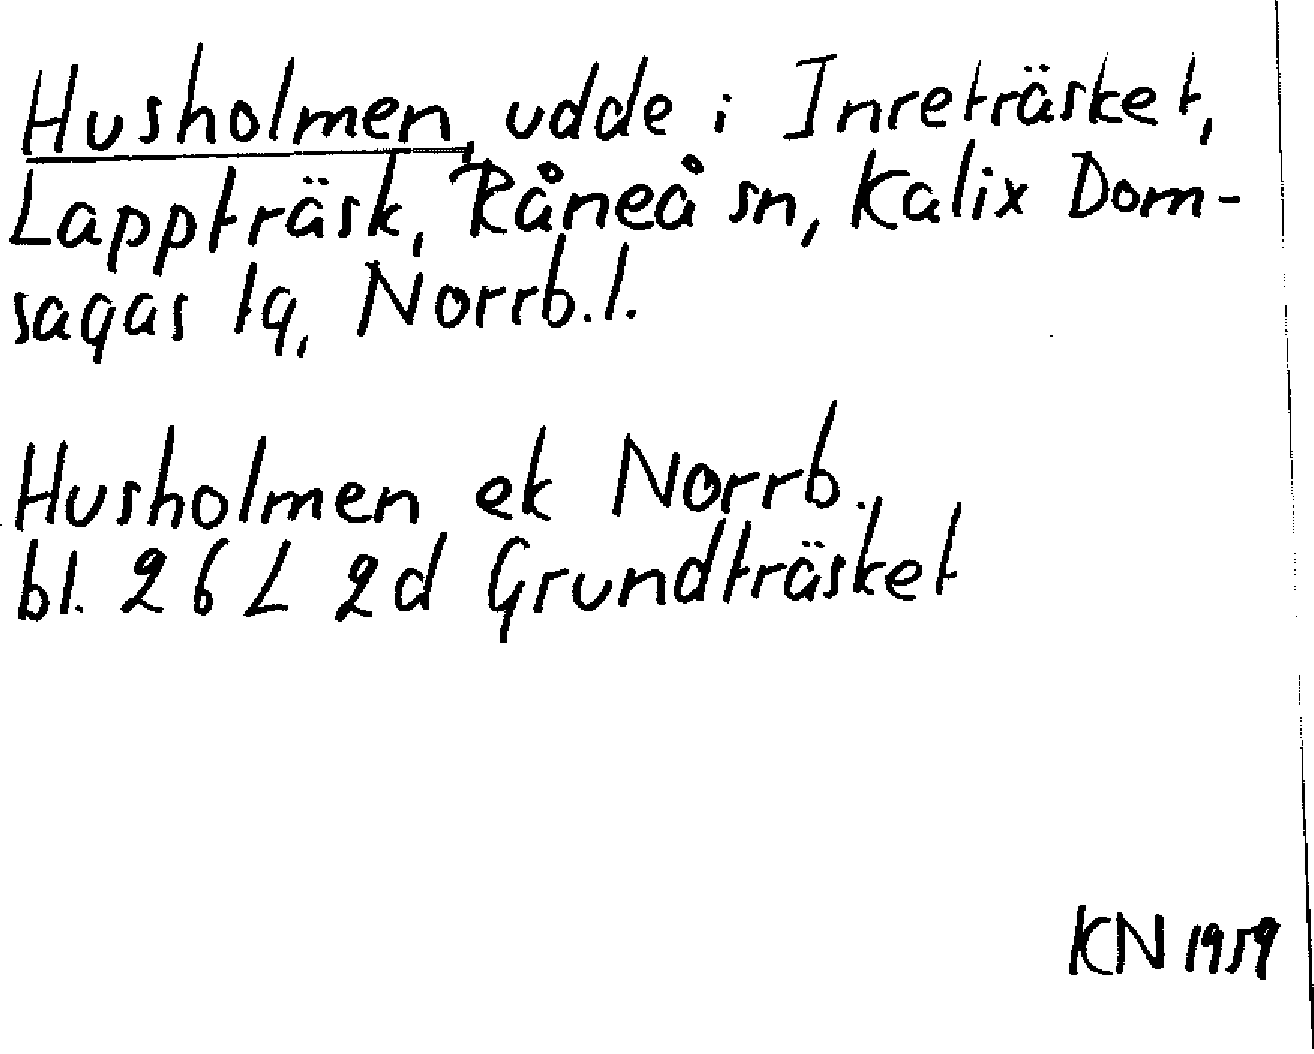 Husholmen, udde i Inreträsket,
Lappträsk, Råneå sn, Kalix Dom-
sagas tg, Norrb.l.
Husholmen ek Norrb.
bl. 26 L 2d Grundträsket
KN 1959